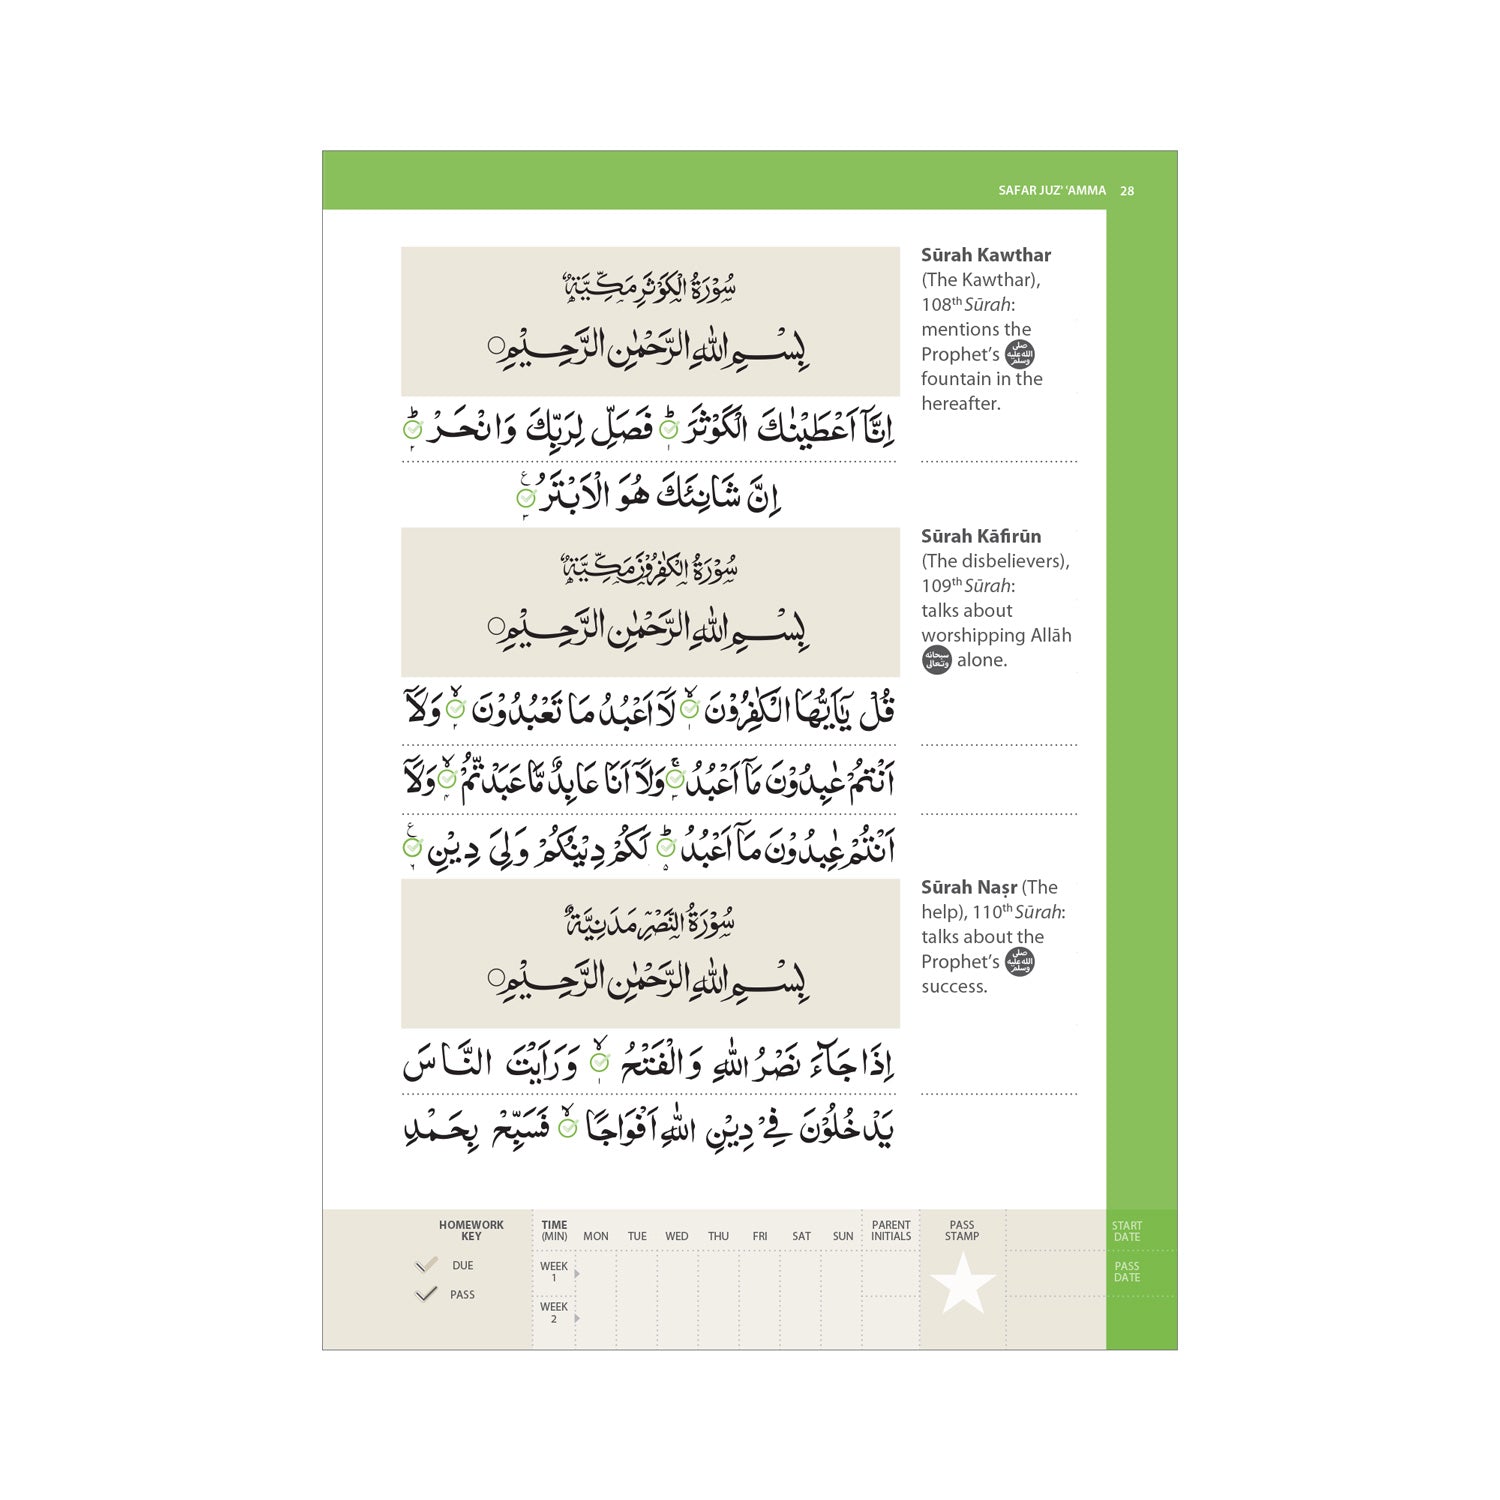 SAFAR JUZ’ ‘AMMA 28
سُوْرَةُ الْكَوْثَرِ مَكِّيَّةٌ
بِسْمِ اللّٰهِ الرَّحْمٰنِ الرَّحِيْمِ
اِنَّآ اَعْطَيْنٰكَ الْكَوْثَرَ ؕ ۱ فَصَلِّ لِرَبِّكَ وَانْحَرْ ؕ ۲
اِنَّ شَانِئَكَ هُوَ الْاَبْتَرُ ع ۳
Sūrah Kawthar
(The Kawthar),
108th Sūrah:
mentions the
Prophet’s صلى الله عليه وسلم
fountain in the
hereafter.
سُوْرَةُ الْكٰفِرُوْنَ مَكِّيَّةٌ
بِسْمِ اللّٰهِ الرَّحْمٰنِ الرَّحِيْمِ
قُلْ يٰٓاَيُّهَا الْكٰفِرُوْنَ ۙ ۱ لَآ اَعْبُدُ مَا تَعْبُدُوْنَ ۙ ۲ وَلَآ
اَنْتُمْ عٰبِدُوْنَ مَآ اَعْبُدُ ۚ ۳ وَلَآ اَنَا عَابِدٌ مَّا عَبَدْتُّمْ ۙ ۴ وَلَآ
اَنْتُمْ عٰبِدُوْنَ مَآ اَعْبُدُ ؕ ۵ لَكُمْ دِيْنُكُمْ وَلِيَ دِيْنِ ع ۶
Sūrah Kāfirūn
(The disbelievers),
109th Sūrah:
talks about
worshipping Allāh
سبحانه وتعالى alone.
سُوْرَةُ النَّصْرِ مَدَنِيَّةٌ
بِسْمِ اللّٰهِ الرَّحْمٰنِ الرَّحِيْمِ
اِذَا جَآءَ نَصْرُ اللّٰهِ وَالْفَتْحُ ۙ ۱ وَرَاَيْتَ النَّاسَ
يَدْخُلُوْنَ فِيْ دِيْنِ اللّٰهِ اَفْوَاجًا ۙ ۲ فَسَبِّحْ بِحَمْدِ
Sūrah Naṣr (The
help), 110th Sūrah:
talks about the
Prophet’s صلى الله عليه وسلم
success.
HOMEWORK
KEY
DUE
PASS
TIME
(MIN) MON TUE WED THU FRI SAT SUN
PARENT
INITIALS
PASS
STAMP
WEEK
1
WEEK
2
START
DATE
PASS
DATE